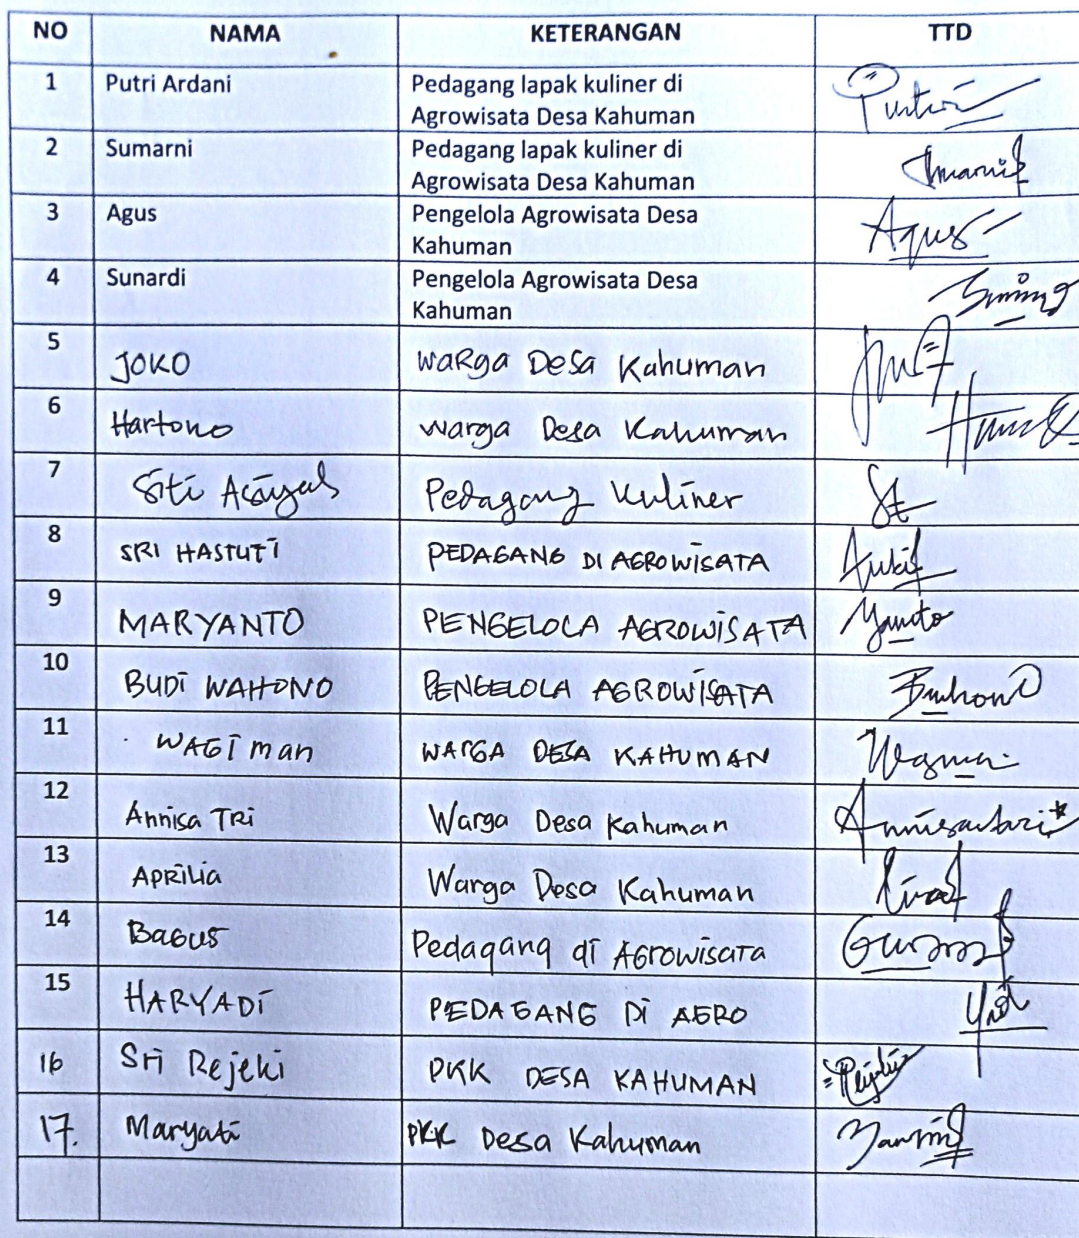 NO NAMA KETERANGAN TTD
1 Putri Ardani Pedagang lapak kuliner di
Agrowisata Desa Kahuman
2 Sumarni Pedagang lapak kuliner di
Agrowisata Desa Kahuman
3 Agus Pengelola Agrowisata Desa
Kahuman Agus
4 Sunardi Pengelola Agrowisata Desa
Kahuman
5 JOKO warga Desa Kahuman
6 Hartono warga Desa Kahuman
7 Siti Pedagang kuliner
8 SRI HASTUTI PEDAGANG DI AGROWISATA
9 MARYANTO PENGELOLA AGROWISATA
10 BUDI WAHONO PENGELOLA AGROWISATA
11 WAGIman WARGA DESA KAHUMAN
12 Annisa TRI Warga Desa Kahuman
13 Aprilia Warga Desa Kahuman
14 BAGUS Pedagang di AGrowisata
15 HARYADI PEDAGANG DI AGRO
16 Sri Rejeki PKK DESA KAHUMAN
17. Maryati PKK Desa Kahuman